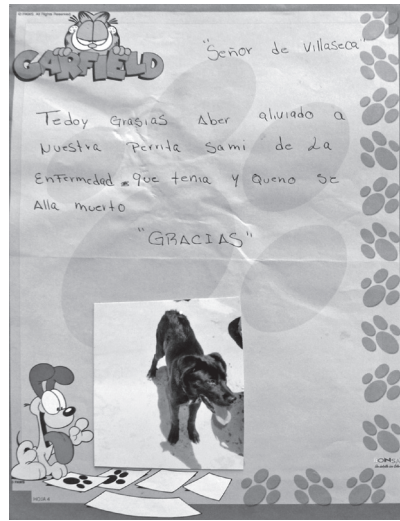 GARFIELD
"Señor de Villaseca"
Tedoy Grasias Aber aliviado a
Nuestra Perrita Sami de La
EnFermedad que tenia y Queno se
Alla muerto
"GRACIAS"